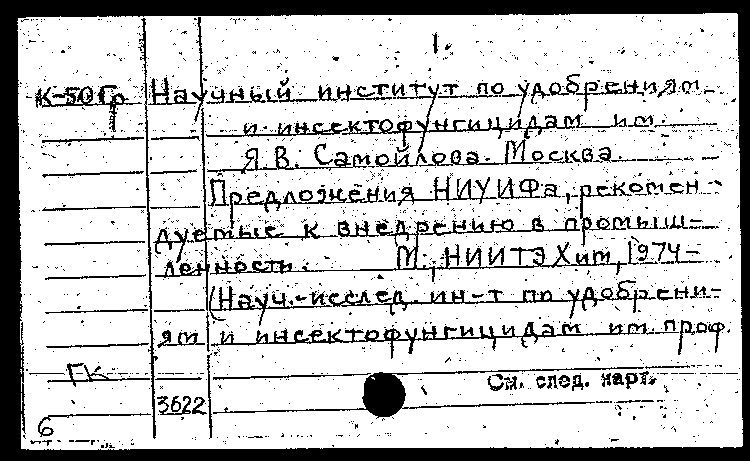 1.
К-50 Гр Научный институт по удобрениям
и инсектофунгицидам им.
Я.В. Самойлова. Москва.
Предложения НИУИФа, рекомен-
дуемые к внедрению в промыш-
ленность. М., НИИТЭХим, 1974-
(Науч.-исслед. ин-т по удобрени-
ям и инсектофунгицидам им. проф.
ГК
См. след. карт.
3622
6